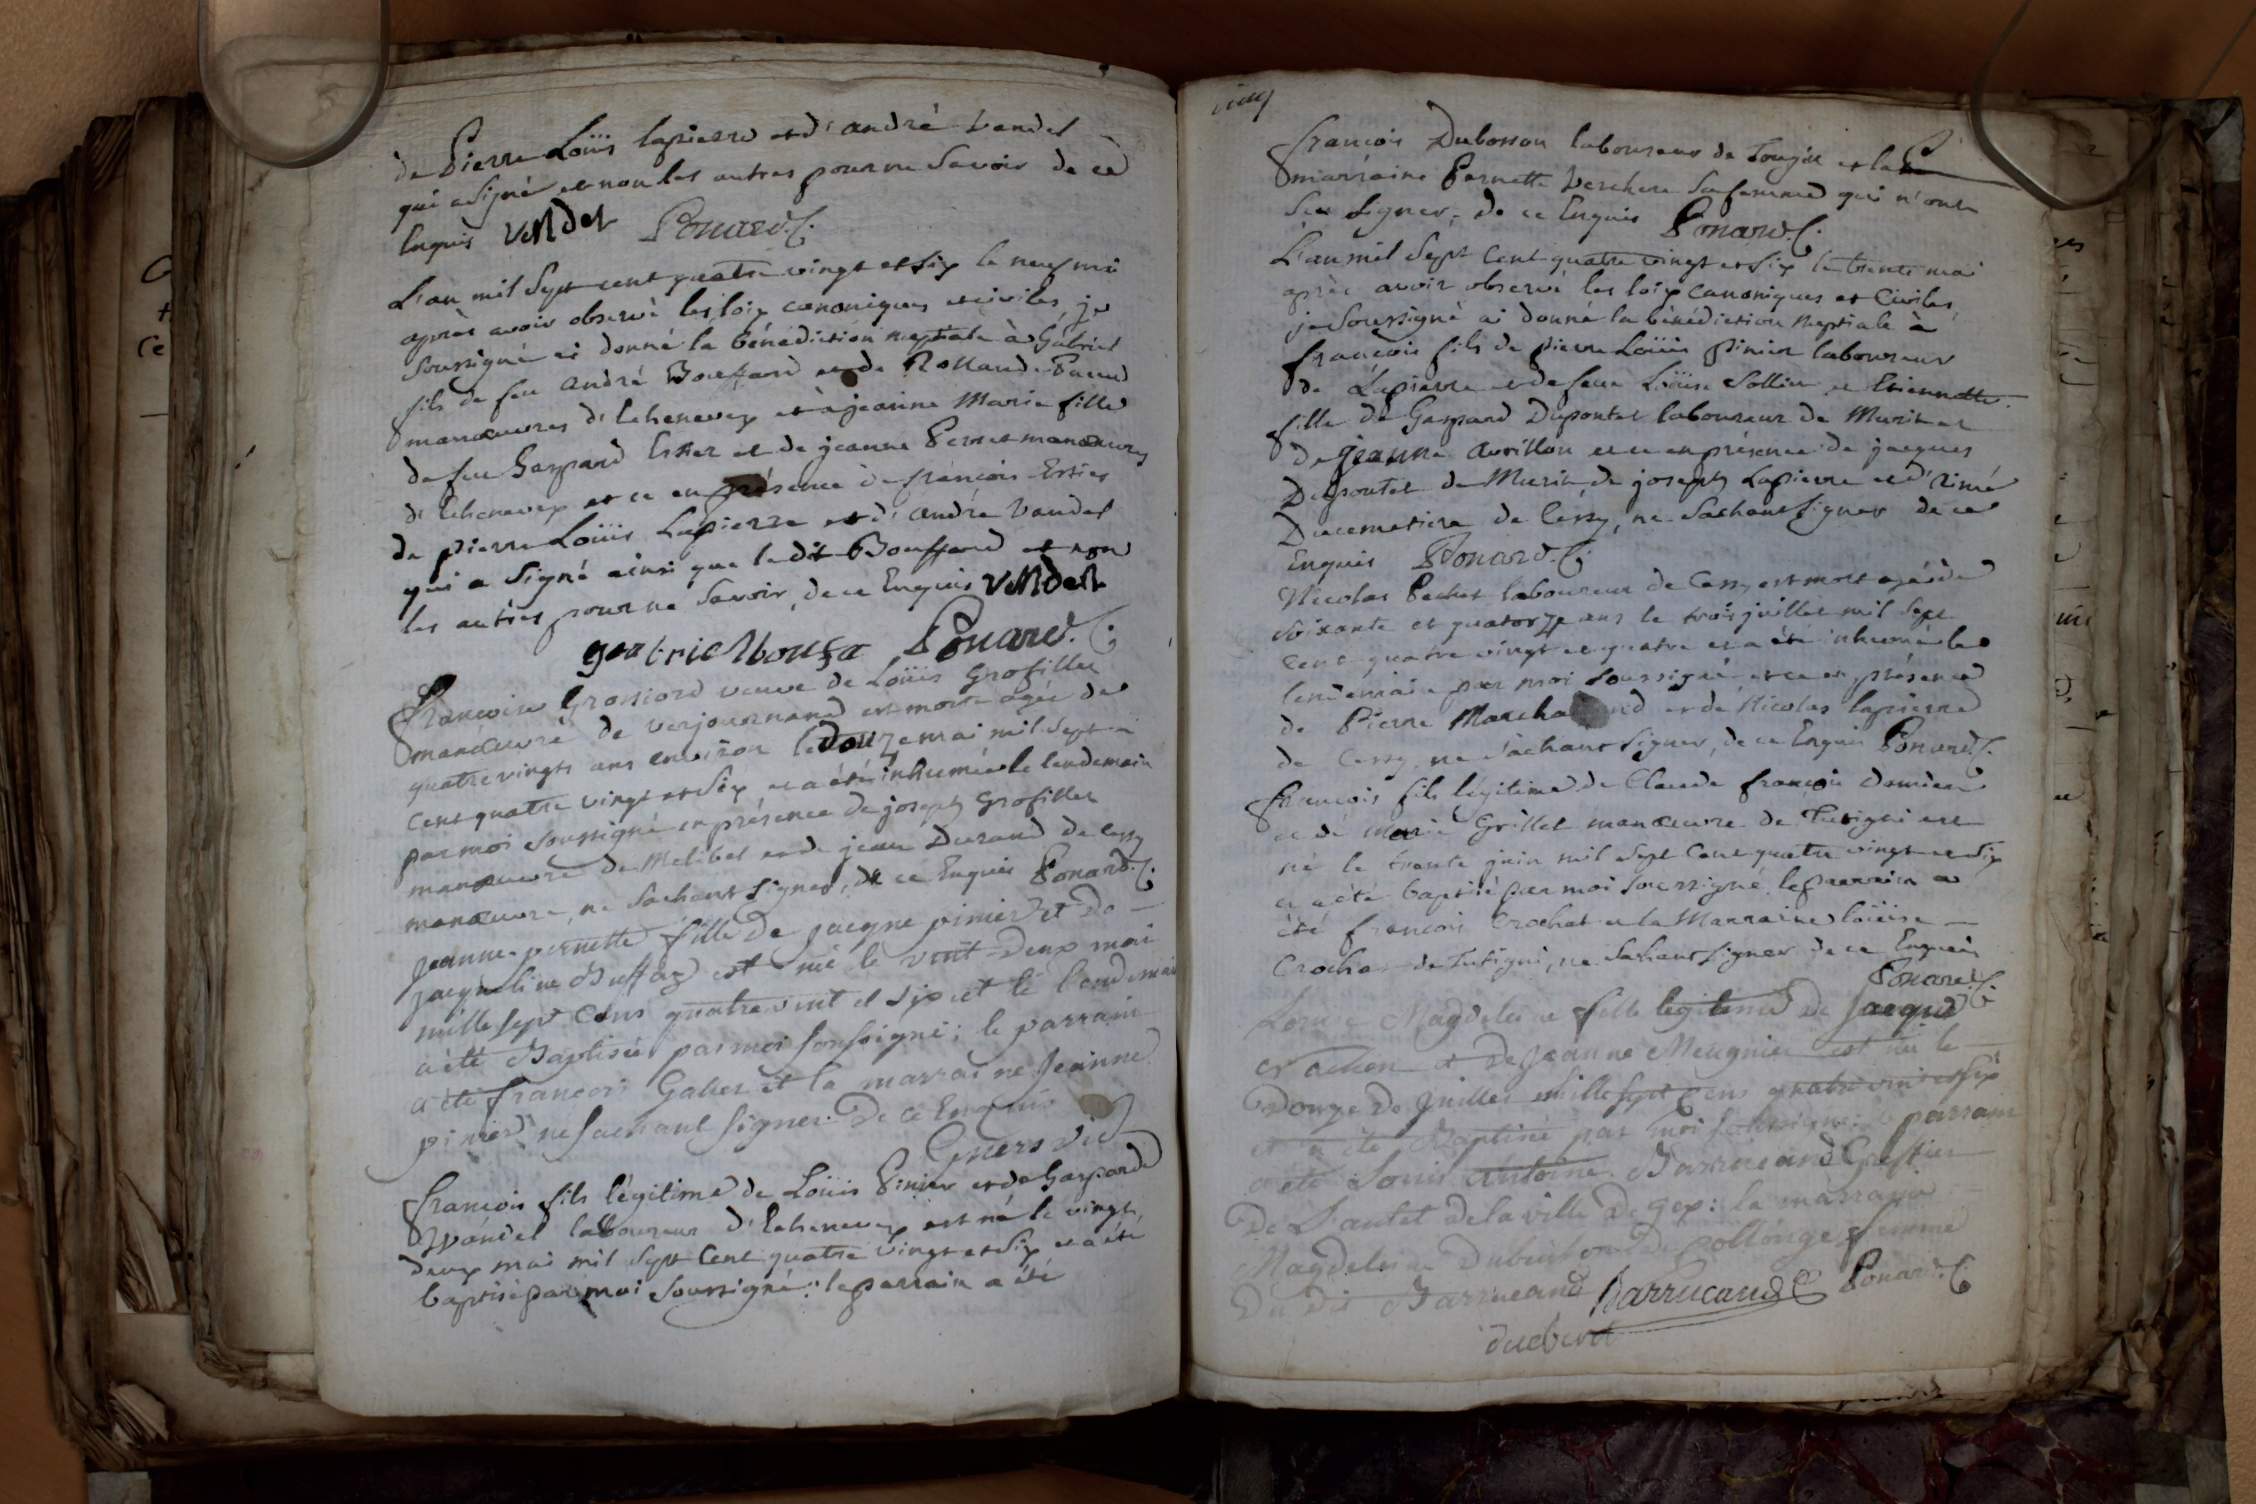 de Pierre Loüis lapierre et d'andré vandel
qui a signé et non les autres pour ne Savoir de ce
Enquis vandel Ponard. C.
L'an mil Sept cent quatre vingt et six le neuf mai
après avoir observé les loix canoniques et civiles je
Soussigné ai donné la bénédiction nuptiale à Gabriel
fils de feu andré Bouffard et de Rollande
manœuvres d'Echenevex et à jeanne Marie fille
de feu Gaspard Estier et de jeanne Perret manœuvres
d'Echenevex et ce en présence de françois Estier
de pierre Loüis Lapierre et d'andré vandel
qui a Signé ainsi que le dit Bouffard et non
les autres pour ne Savoir, de ce Enquis vandel
Ponard. C.
Françoise Grossiord veuve de Loüis Grosfillex
manœuvre de verjournand est morte agée de
quatre vingts ans environ le Douze mai mil Sept
cent quatre vingt et Six et a été inhumée le lendemain
par moi soussigné en présence de joseph Grosfillex
manœuvre de et de jean Durand de Cessy
manœuvre, ne Sachant signer, de ce Enquis Ponard. C.
jeanne-pernette fille de jacque pinier et de
jacqueline Buffaz est née le vint-Deux mai
mille sept Cens quatre vint et six et le lendemain
a été Baptisée par moi soussigné; le parrain
a été françois Gallet et la marraine Jeanne
pinier ne sachant signer De ce Enquis
françois fils légitime de Loüis Pinier et de Gasparde
vandel laboureur d'Echenevex est né le vingt
deux mai mil Sept Cent quatre vingt et Six et a été
baptisé par moi Soussigné: le parrain a été
françois Dubosson laboureur de Tougin et la
marraine Pernette Verchere Sa femme qui n'ont
Sçu Signer, de ce Enquis Ponard. C.
L'an mil Sept Cent quatre vingt et Six le trente mai
après avoir observé les loix Canoniques et Civiles,
je Soussigné ai donné la bénédiction Nuptiale à
françois fils de pierre Loüis Pinier laboureur
de Lapierre et de feue Loüise Sollier et Etiennette
fille de Gaspard Dupontet laboureur de Murit et
de jeanne avrillon et ce en présence de jacques
Dupontet de Murit de joseph Lapierre et d'aimé
Ducemetiere de Cessy, ne Sachant Signer de ce
Enquis Ponard. C.
Nicolas Pechet laboureur de Cessy est mort agé de
Soixante et quatorze ans le trois juillet mil Sept
Cent quatre vingt et quatre et a été inhumé le
lendemain par moi soussigné et ce en présence
de Pierre Marchand et de Nicolas lapierre
de Cessy, ne sachant signer, de ce Enquis Ponard. C.
françois fils légitime de Claude françois
et de marie Grillet manœuvre de Tutigni est
né le trente juin mil Sept Cent quatre vingt et Six
et a été baptisé par moi Soussigné le parrain a
été françois Crochat et la Marraine loüise
Crochat de Tutigni, ne Sachant signer de ce Enquis
Ponard. C.
Louise Magdeleine fille légitime de Jacque
et de Jeanne Meugnier est née le
Douze De Juillet mille sept Cens quatre vint et six
et a été Baptisée par moi soussigné: le parrain
a été Louis Antoine Barrucand Greffier
De de la ville De gex: la marraine
Magdeleine De pollonge femme
Du Dit Barrucand Barrucand Ponard. C.